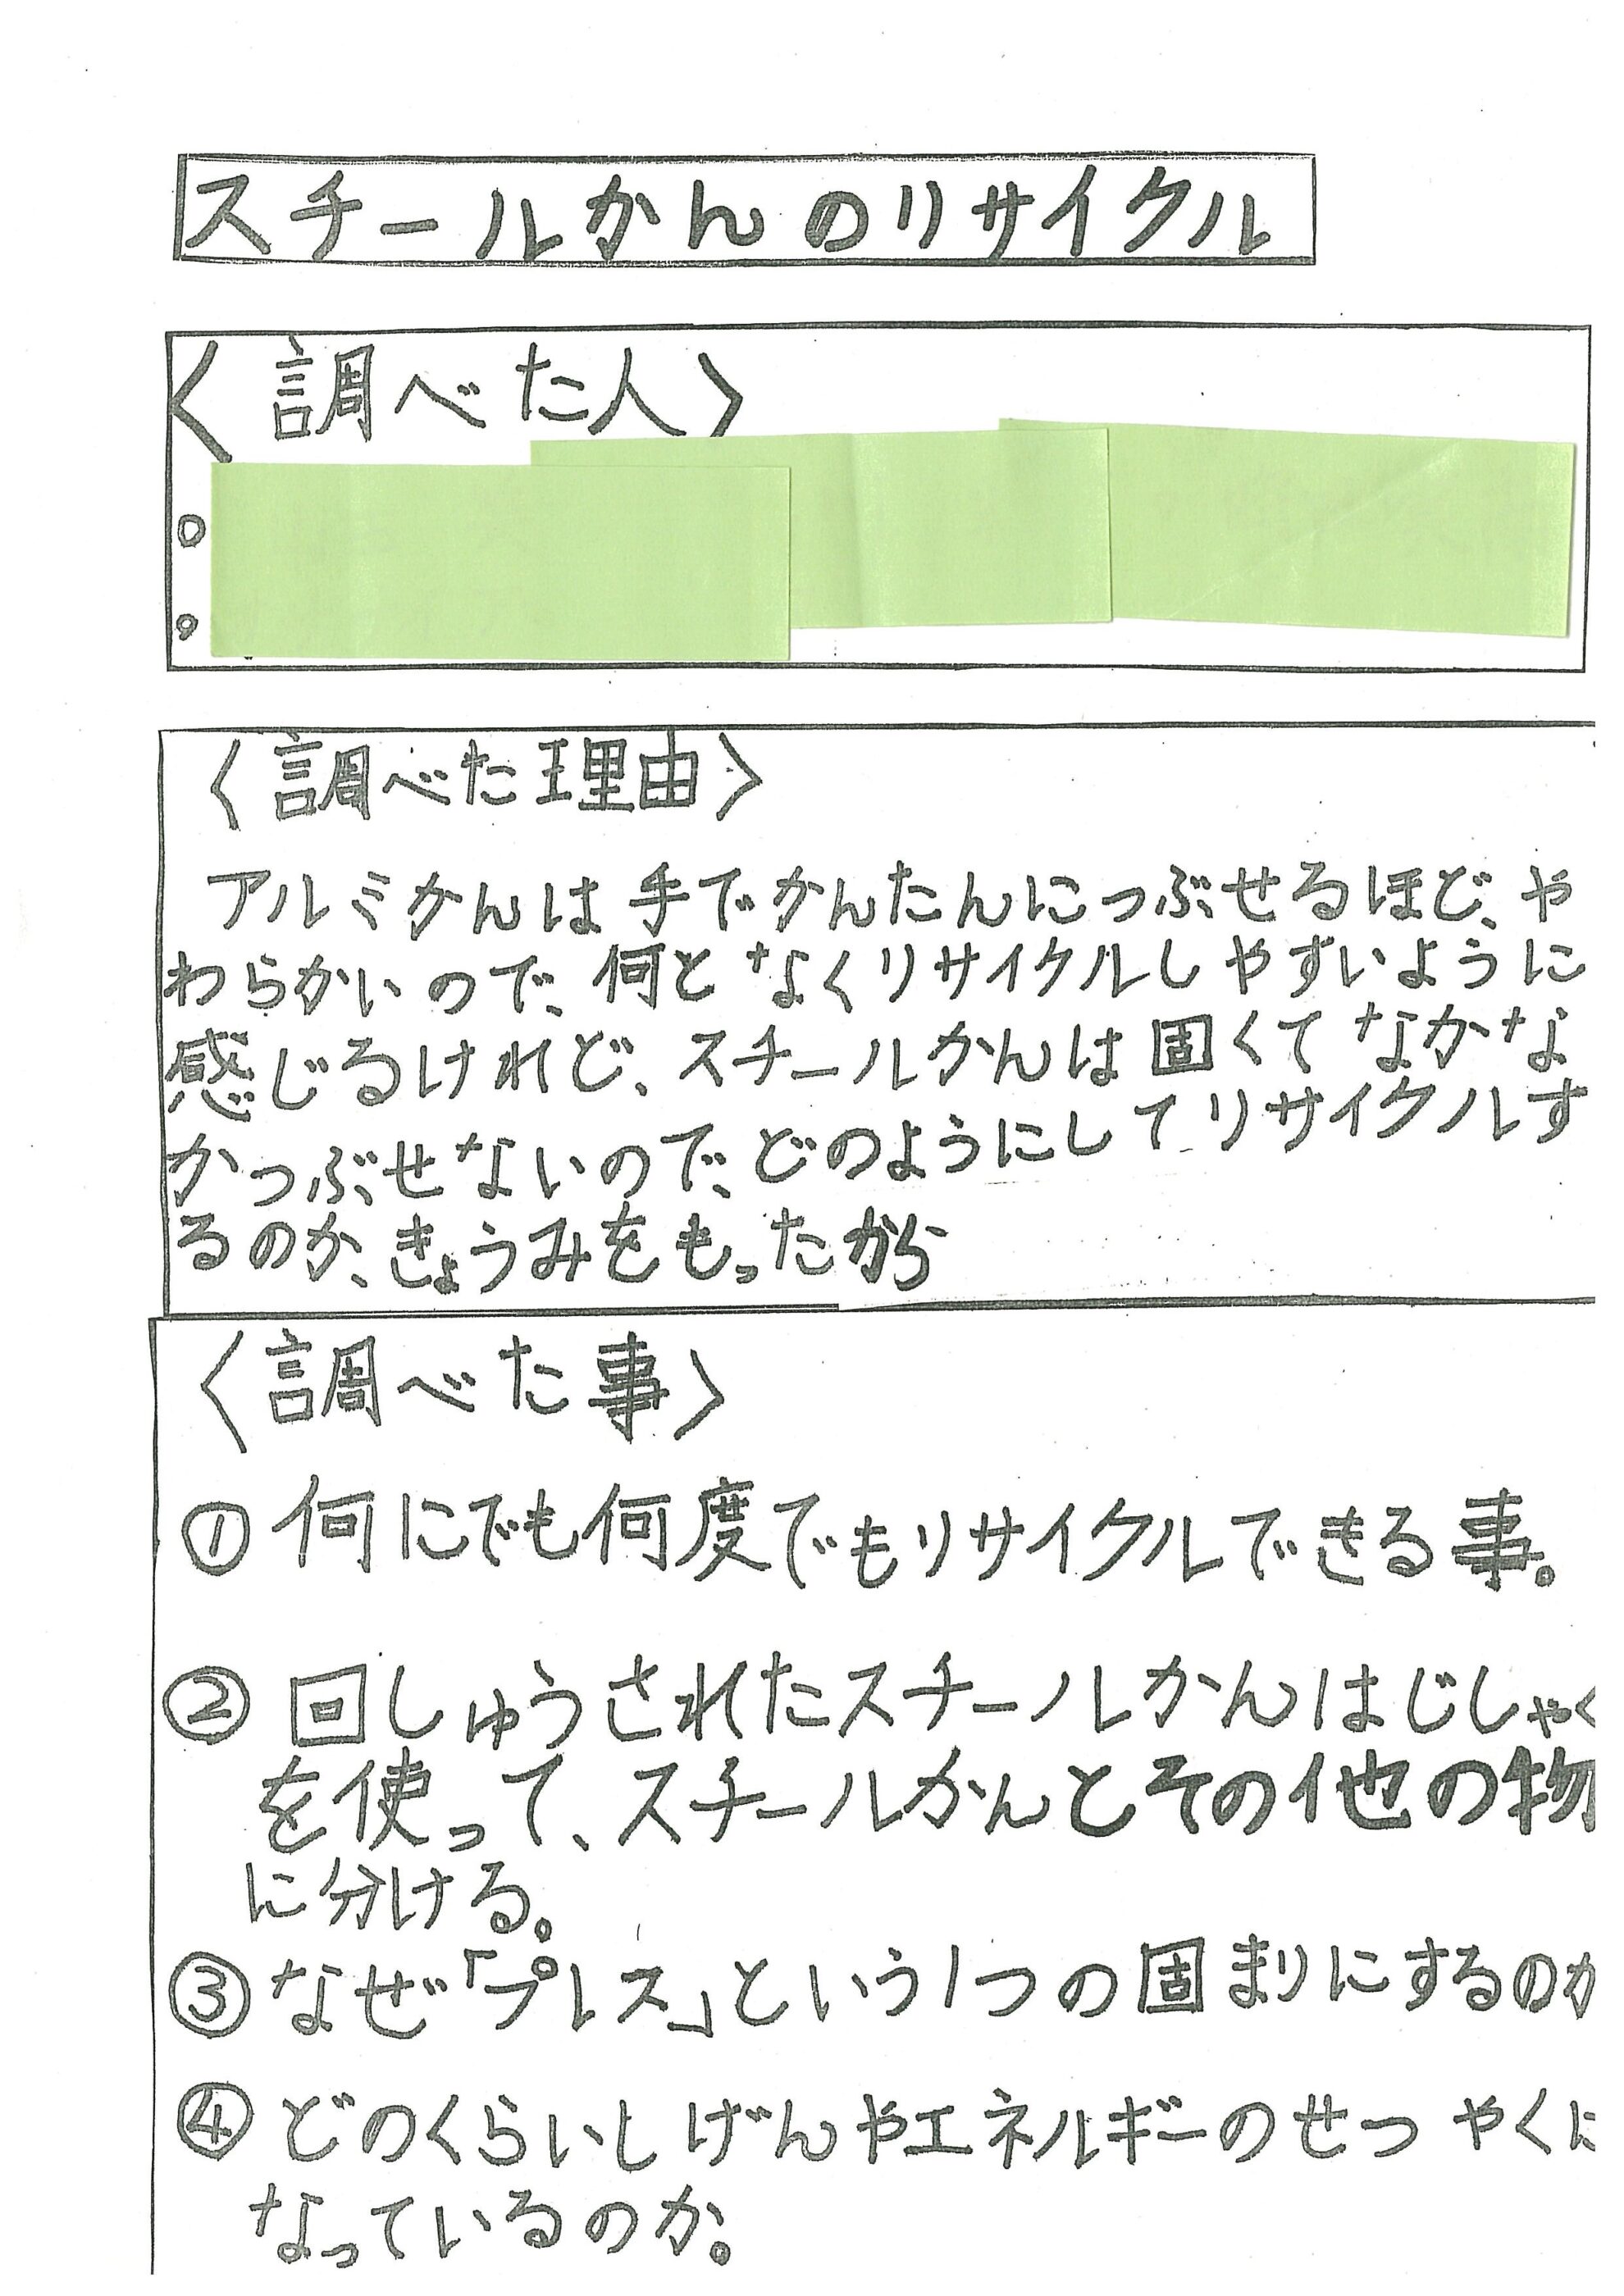 スチールかんのリサイクル
〈調べた人〉
〈調べた理由〉
アルミかんは手でかんたんにつぶせるほど、や
わらかいので、何となくリサイクルしやすいように
感じるけれど、スチールかんは固くてなかな
かつぶせないので、どのようにしてリサイクルす
るのか、きょうみをもったから
〈調べた事〉
①何にでも何度でもリサイクルできる事。
②回しゅうされたスチールかんはじしゃく
を使って、スチールかんとその他の物
に分ける。
③なぜ「プレス」という1つの固まりにするのか
④どのくらいしげんやエネルギーのせつやくに
なっているのか。